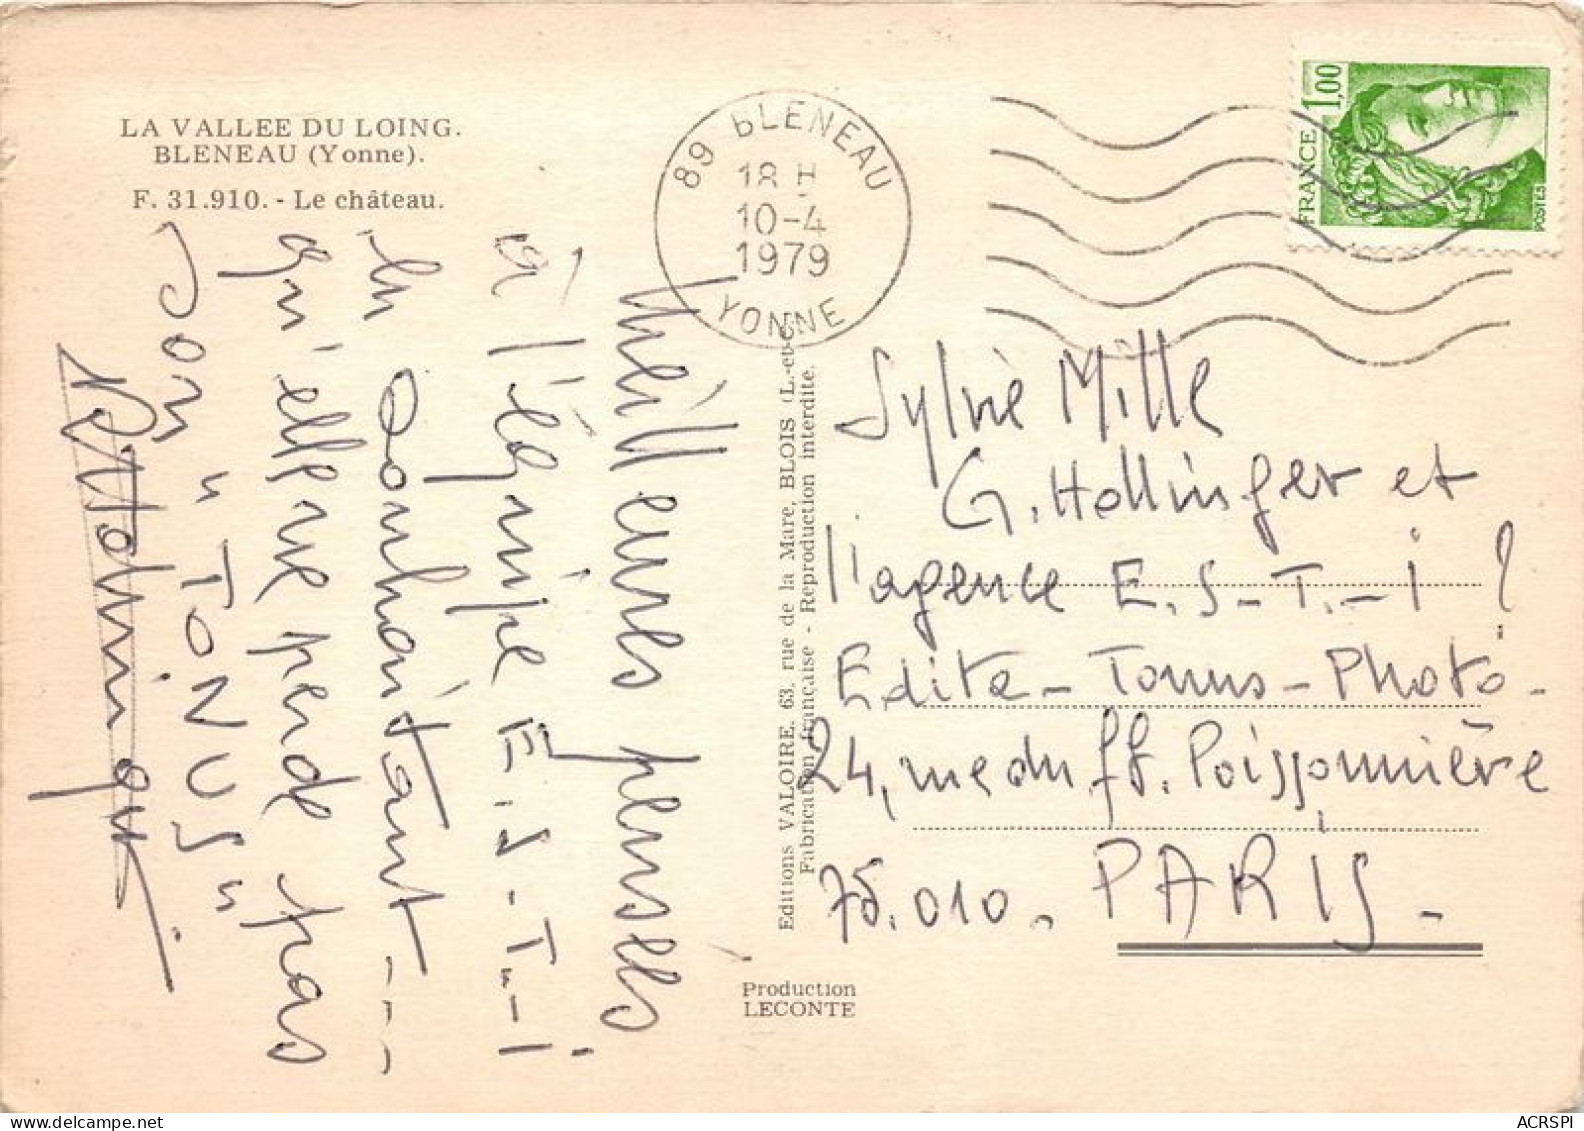 LA VALLEE DU LOING.
BLENEAU (Yonne).
F. 31.910. - Le château.
89 BLENEAU
18 H
10-4
1979
YONNE
FRANCE 1,00
POSTES
Meilleures pensées
à l'équipe E.S-T.-i
en souhaitant - - -
qu'elle ne perde pas
son "TONUS"
Editions VALOIRE. 63. rue de la Mare, BLOIS (L.-et-C
Fabrication française - Reproduction interdite.
Production
LECONTE
Sylvie Mille
G. Hollinger et
l'agence E.S-T.-i ?
Edite-Tonus-Photo-
24, rue du fb. Poissonnière
75.010. PARIS-
ACRSPI